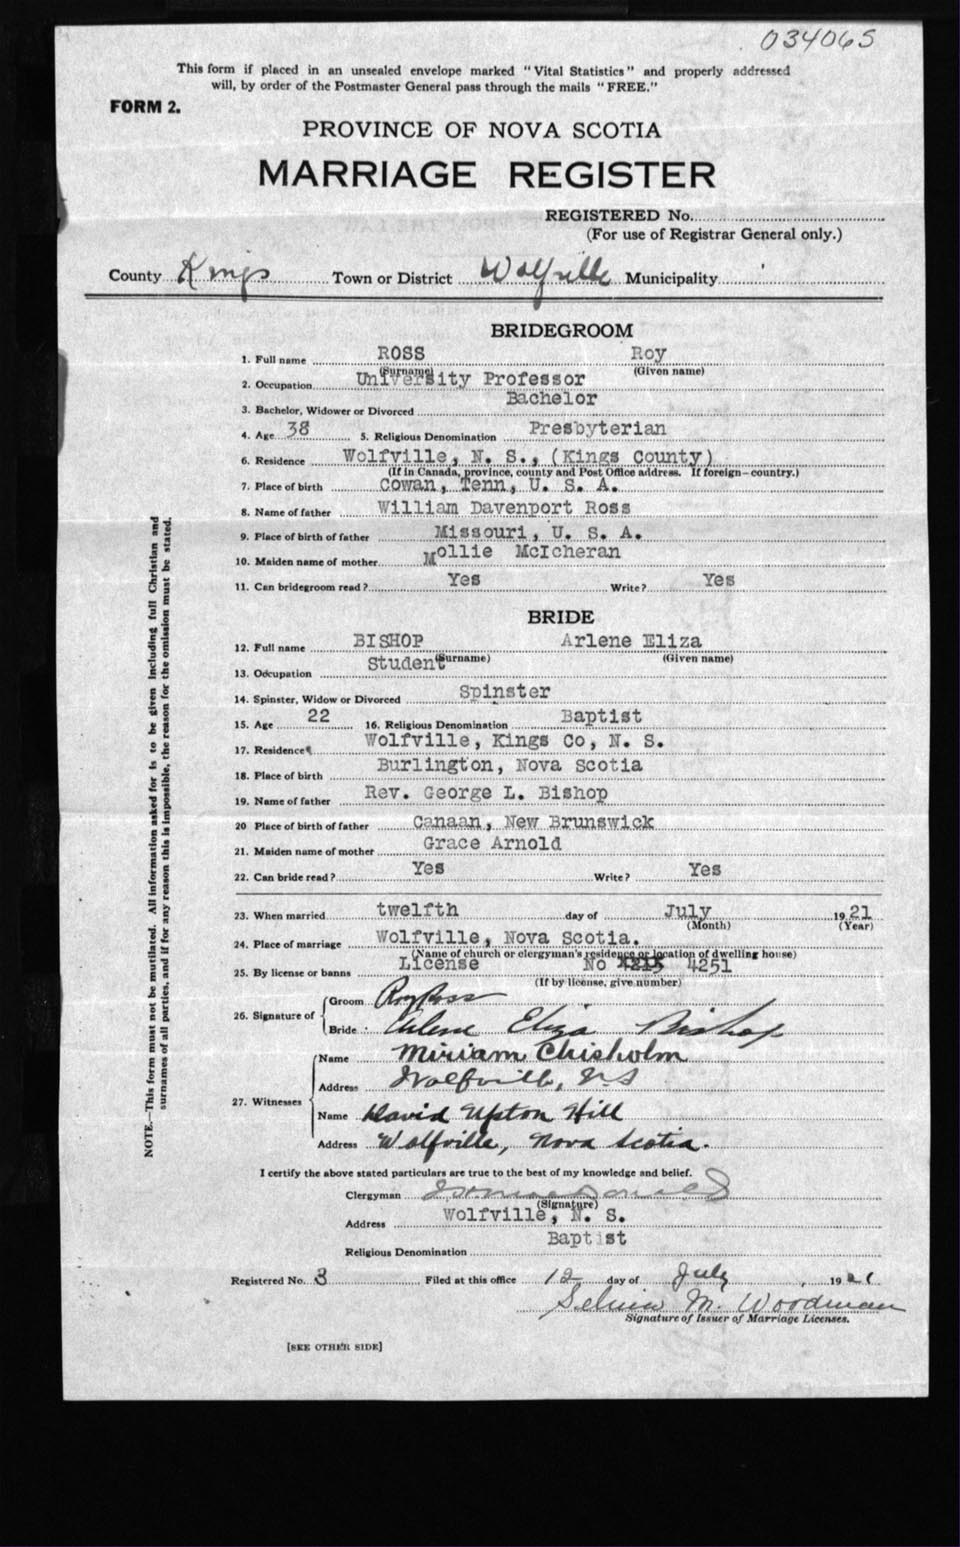 034065
This form if placed in an unsealed envelope marked "Vital Statistics" and properly addressed
will, by order of the Postmaster General pass through the mails "FREE."
FORM 2.
PROVINCE OF NOVA SCOTIA
MARRIAGE REGISTER
REGISTERED No.
(For use of Registrar General only.)
County Kings Town or District Wolfville Municipality
BRIDEGROOM
1. Full name ROSS Roy
(Surname) (Given name)
2. Occupation University Professor
3. Bachelor, Widower or Divorced Bachelor
4. Age 38 5. Religious Denomination Presbyterian
6. Residence Wolfville, N. S., (Kings County)
(If in Canada, province, county and Post Office address. If foreign—country.)
7. Place of birth Cowan, Tenn, U. S. A.
8. Name of father William Davenport Ross
9. Place of birth of father Missouri, U. S. A.
10. Maiden name of mother Mollie McIcheran
11. Can bridegroom read? Yes Write? Yes
BRIDE
12. Full name BISHOP Arlene Eliza
(Surname) (Given name)
13. Occupation Student
14. Spinster, Widow or Divorced Spinster
15. Age 22 16. Religious Denomination Baptist
17. Residence Wolfville, Kings Co, N. S.
18. Place of birth Burlington, Nova Scotia
19. Name of father Rev. George L. Bishop
20 Place of birth of father Canaan, New Brunswick
21. Maiden name of mother Grace Arnold
22. Can bride read? Yes Write? Yes
23. When married twelfth day of July 1921
(Month) (Year)
24. Place of marriage Wolfville, Nova Scotia.
(Name of church or clergyman's residence or location of dwelling house)
25. By license or banns License No 4251
(If by license, give number)
26. Signature of Groom Roy Ross
Bride Arlene Eliza Bishop
27. Witnesses
Name Miriam Chisholm
Address Wolfville, N.S
Name David Upton Hill
Address Wolfville, Nova Scotia.
I certify the above stated particulars are true to the best of my knowledge and belief.
Clergyman
(Signature)
Address Wolfville, N. S.
Religious Denomination Baptist
Registered No. 3 Filed at this office 12 day of July, 1921
M. Woodman
Signature of Issuer of Marriage Licenses.
[SEE OTHER SIDE]
NOTE.—This form must not be mutilated. All information asked for is to be given including full Christian and
surnames of all parties, and if for any reason this is impossible, the reason for the omission must be stated.